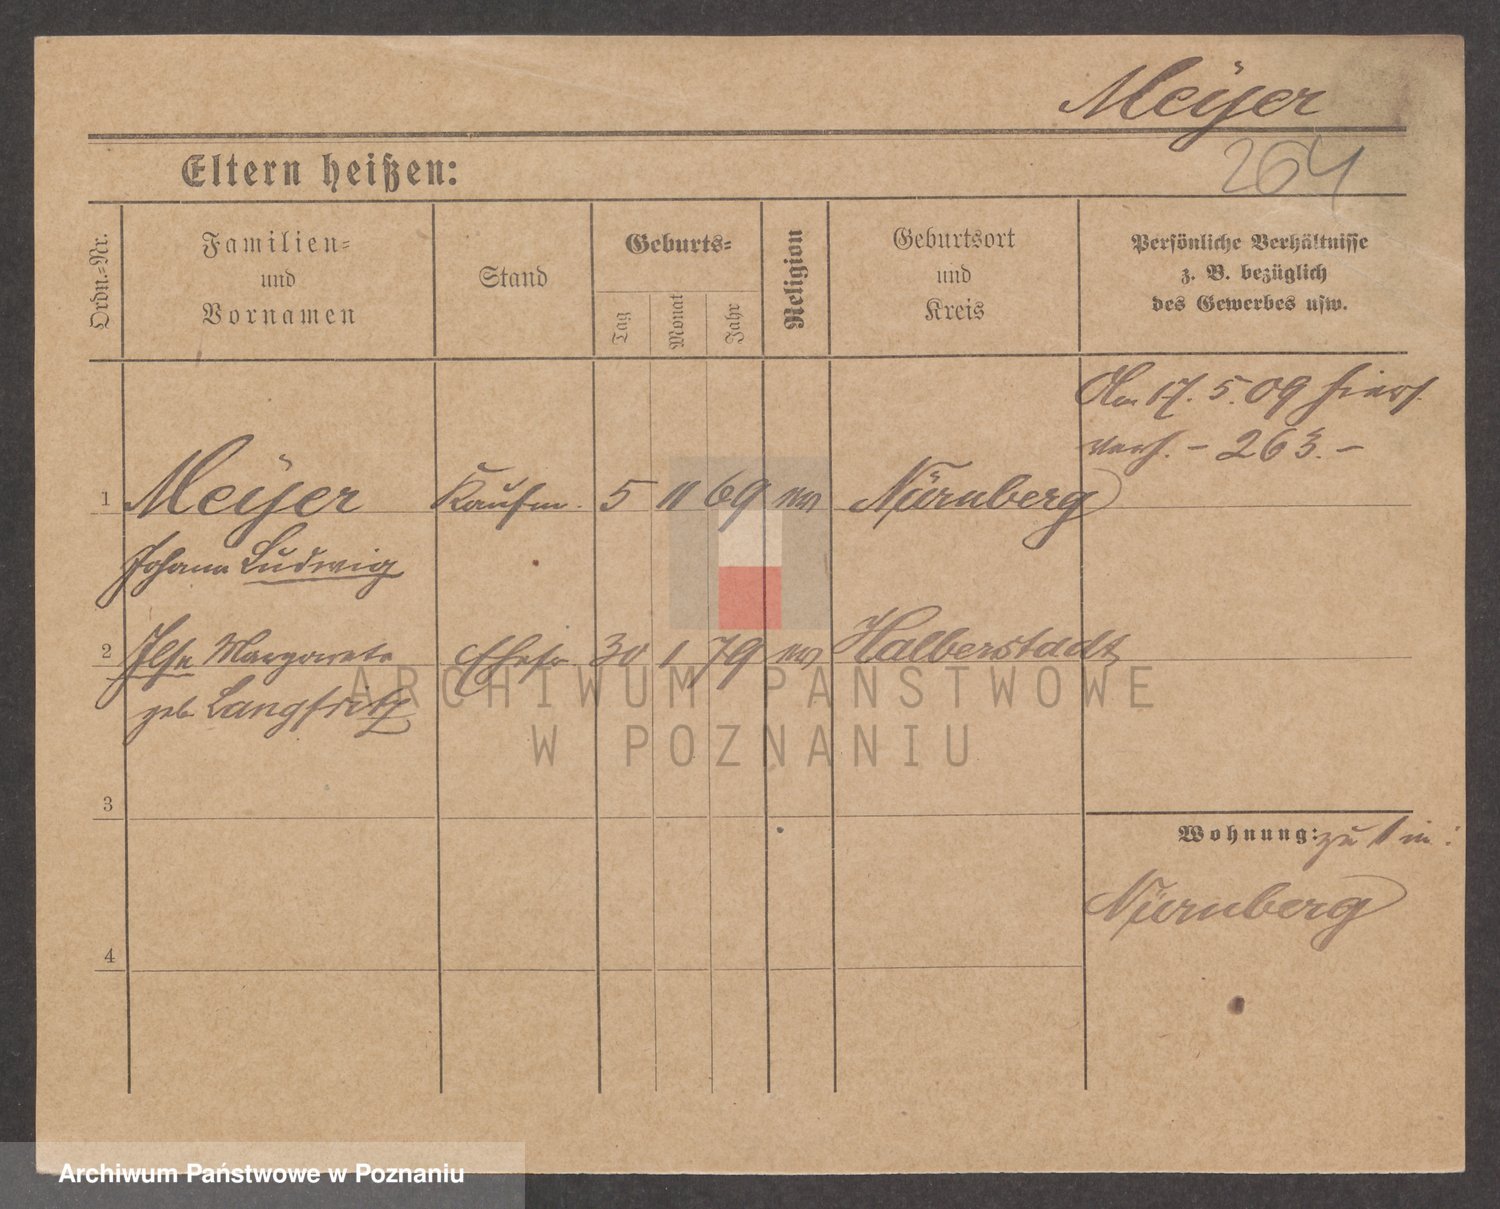 Meÿer
264
Eltern heißen:
Ordn.=Nr.
Familien=
und
Vornamen
Stand
Geburts=
Tag
Monat
Jahr
Religion
Geburtsort
und
Kreis
Persönliche Verhältnisse
z. B. bezüglich
des Gewerbes usw.
Am 17. 5. 09 hiers.
verh. – 263. –
1 Meÿer Kaufm. 5 11 69 ev Nürnberg
Johann Ludwig
2 Ilse Margarete Ehefr 30 1 79 ev Halberstadt
geb Langfritz
3
Wohnung: zu 1 in:
Nürnberg
4
ARCHIWUM PAŃSTWOWE
W POZNANIU
Archiwum Państwowe w Poznaniu